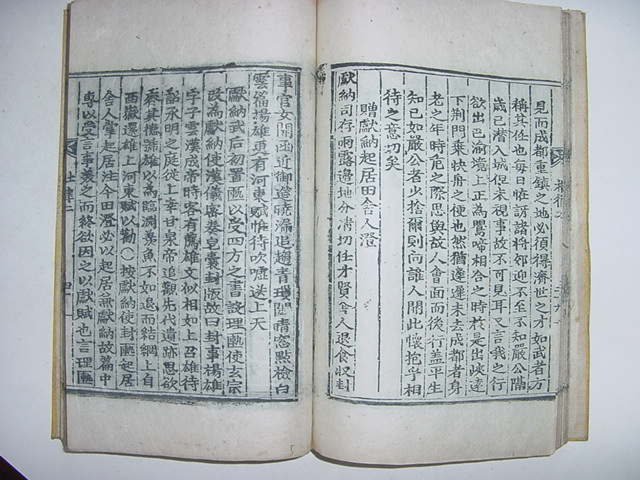 見而成都重鎮之地必須得濟世之才如武者方
稱其任也每日怪訝諸將郊迎不至不知嚴公隔
歲已潜入城但未視事故下不可見耳又言我之行
欲出巴渝境上正為鶯啼相合之時於是出峽遶
下荆門乗快舟之便也然猶遲遲未去成都者身
老之年時危之際思與故人會面而後行盖平生
知己如嚴公者少捨爾則向誰人開此懐抱乎相
待之意切矣
贈獻納起居田舍人澄
獻納司存雨露邊地分清切任才賢舍人退食收封
事官女開函近御筵曉漏追趨青瑣闥晴窓點檢白
雲篇揚雄更有河東賦惟待吹噓送上天
獻納武后初置匭以受四方之書設理匭使玄宗
改為獻納使漢儀密奏皂囊封版故曰封事揚雄
字子雲漢成帝時客有薦雄文似相如上召雄待
詔承明之庭從上幸甘泉帝追觀先代遺跡思欲
齊其德號雄以為臨淵羡魚不如退而結網上自
西嶽還雄上河東賦以勸○按獻納使封匭起居
舍人掌起居注今田澄必以起居無獻納故篇中
專以受言事美之而終欲因之以獻賦也言理匭
杜律二